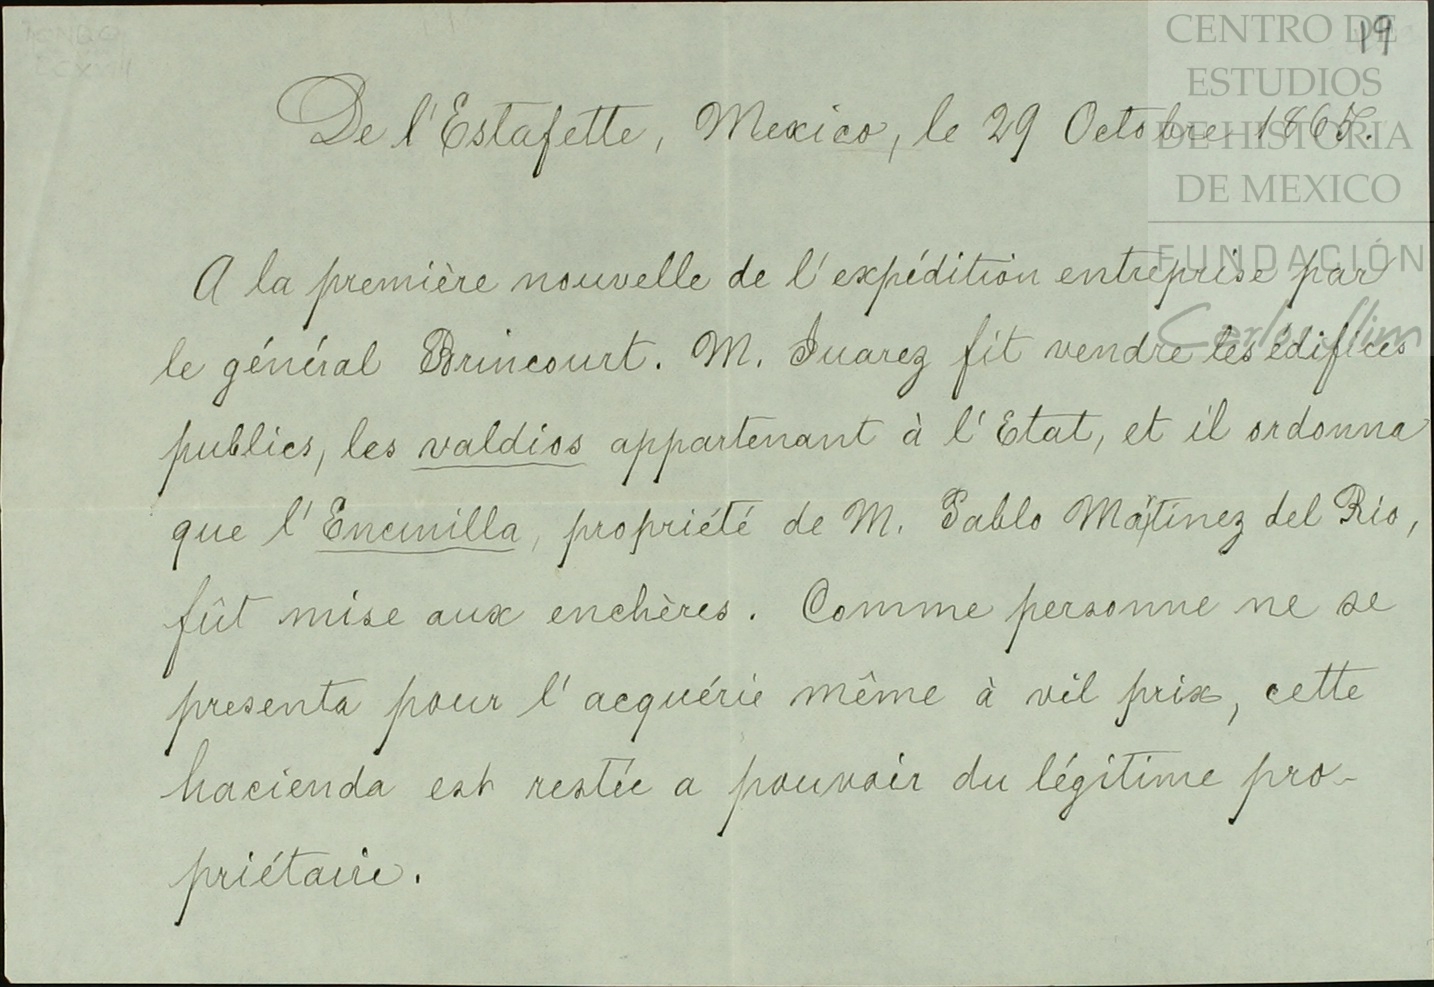 19
De l'Estafette, Mexico, le 29 Octobre 1865.
A la première nouvelle de l'expédition entreprise par
le général Brincourt. M. Juarez fit vendre les édifices
publics, les valdios appartenant à l'Etat, et il ordonna
que l'Encinilla, propriété de M. Pablo Martinez del Rio,
fût mise aux enchères. Comme personne ne se
presenta pour l'acquérir même à vil prix, cette
hacienda est restée a pouvoir du légitime pro-
priétaire.
CENTRO DE
ESTUDIOS
DE HISTORIA
DE MEXICO
FUNDACIÓN
Carlos Slim